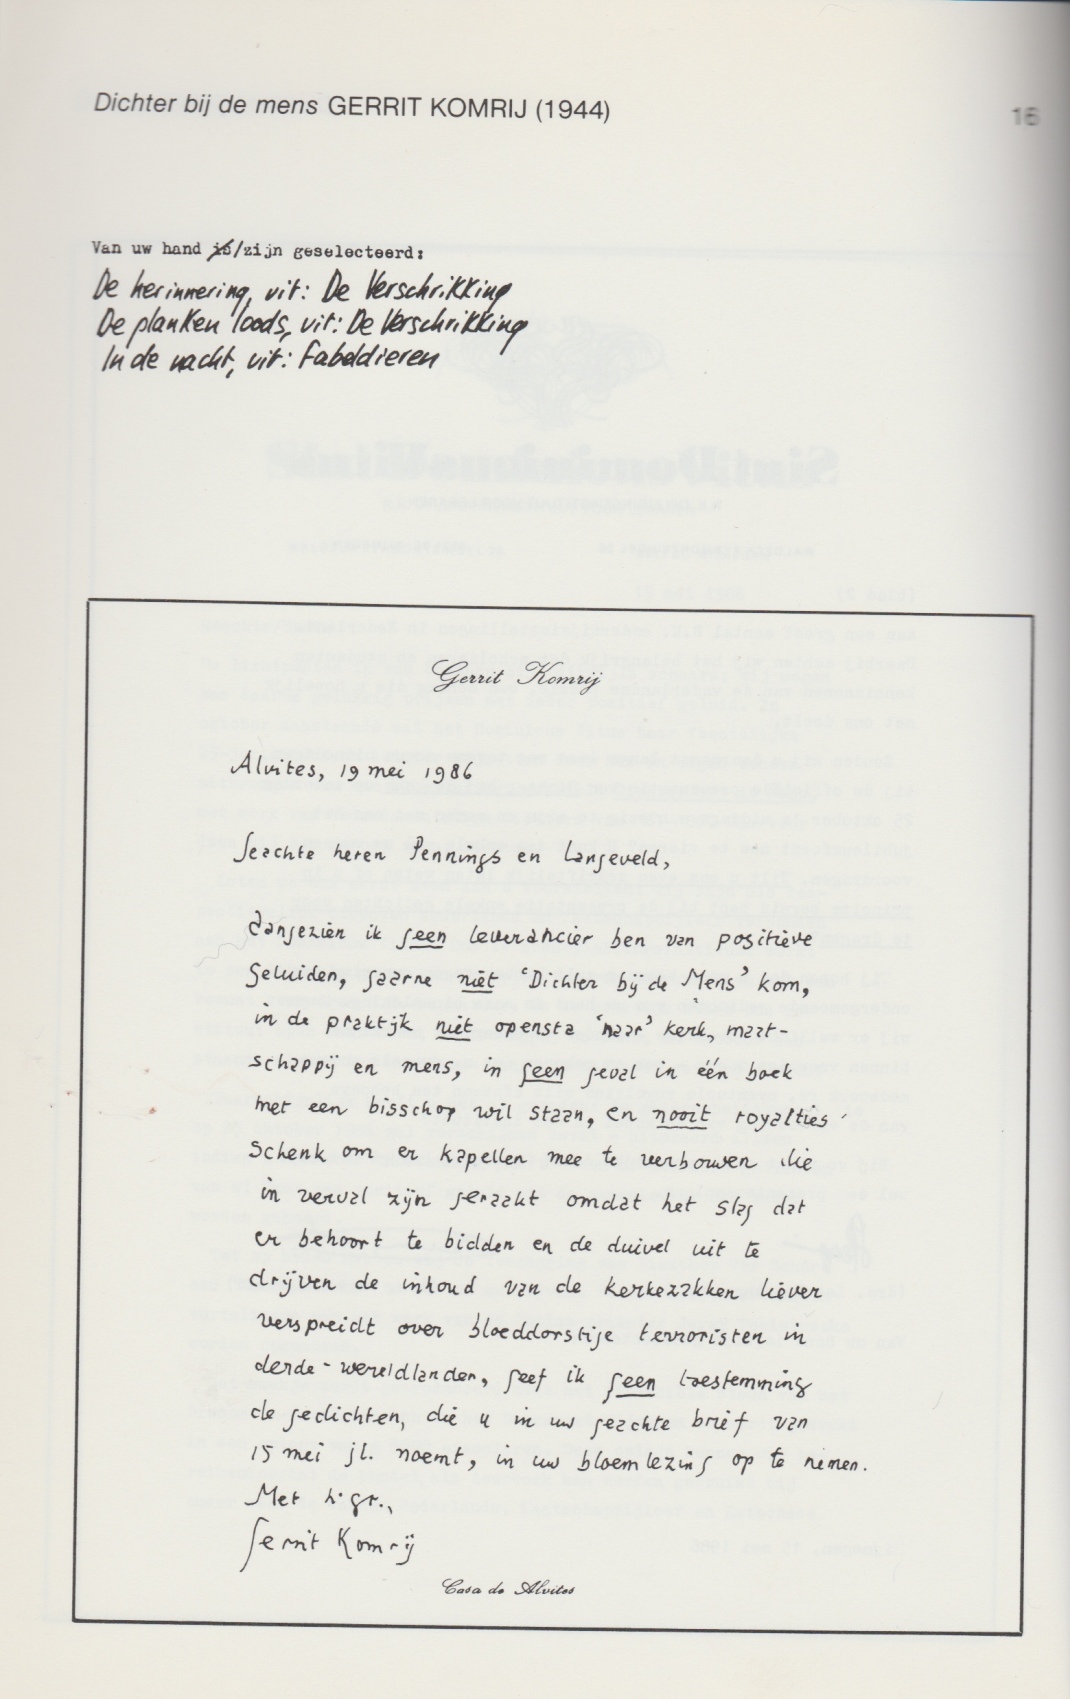 Dichter bij de mens GERRIT KOMRIJ (1944)
16
Van uw hand is/zijn geselecteerd:
De herinnering, uit: De Verschrikking
De planken loods, uit: De Verschrikking
In de nacht, uit: Fabeldieren
Gerrit Komrij
Alvites, 19 mei 1986
Geachte heren Pennings en Langeveld,
Aangezien ik geen leverancier ben van positieve
geluiden, gaarne niet 'Dichter bij de Mens' kom,
in de praktijk niet opensta 'naar' kerk, maat-
schappij en mens, in geen geval in één boek
met een bisschop wil staan, en nooit royalties
schenk om er kapellen mee te verbouwen die
in verval zijn geraakt omdat het slag dat
er behoort te bidden en de duivel uit te
drijven de inhoud van de kerkezakken liever
verspreidt over bloeddorstige terroristen in
derde-wereldlanden, geef ik geen toestemming
de gedichten, die u in uw geachte brief van
15 mei jl. noemt, in uw bloemlezing op te nemen.
Met h. gr.,
Gerrit Komrij
Casa de Alvites